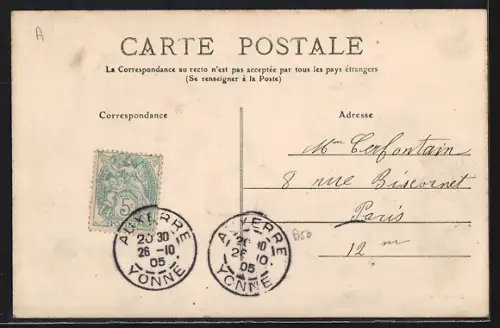 A
CARTE POSTALE
La Correspondance au recto n'est pas acceptée par tous les pays étrangers
(Se renseigner à la Poste)
Correspondance
Adresse
Mme Cerfontain
8 rue Biscornet
Paris
12 me
5
AUXERRE
20 30
26 -10
05
YONNE
AUXERRE
20 30
26 -10
05
YONNE
B50